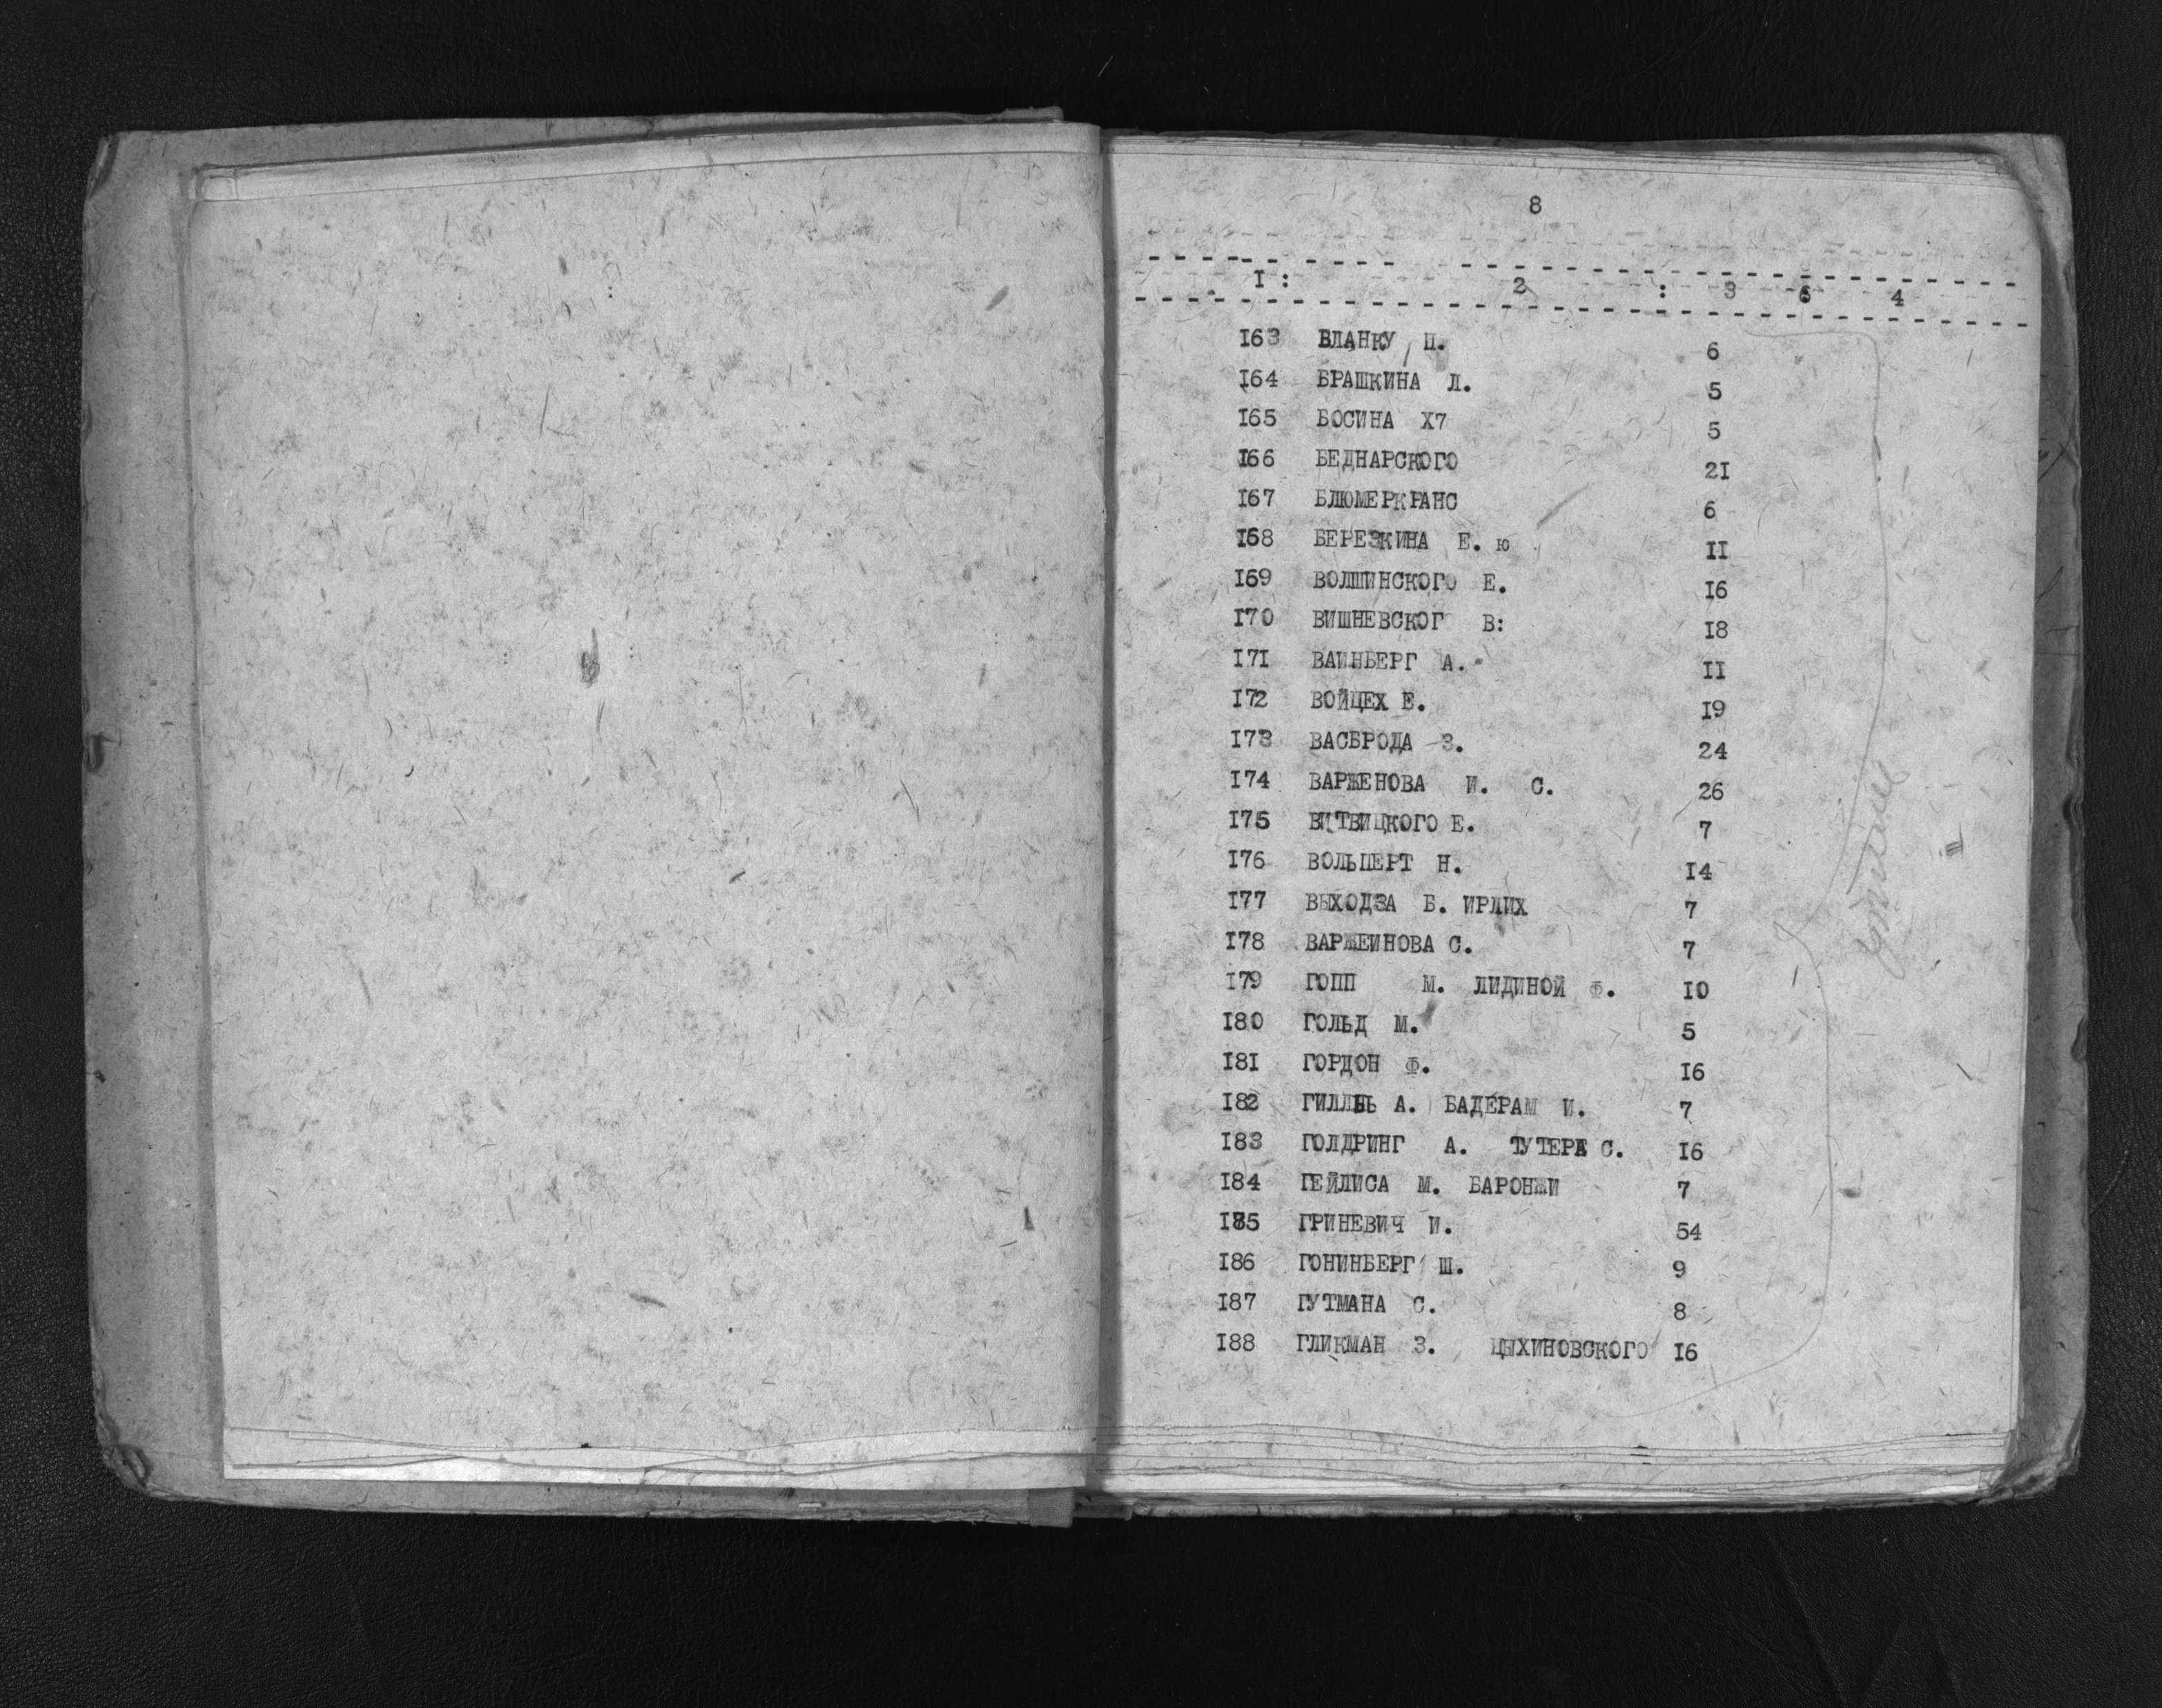 8
I : 2 : 3 6 4
I63 БЛАНКУ П. 6
I64 БРАШКИНА Л. 5
I65 БОСИНА Х7 5
I66 БЕДНАРСКОГО 2I
I67 БЛЮМЕРКРАНС 6
I68 БЕРЕЗКИНА Е. ю II
I69 ВОЛШИНСКОГО Е. I6
I70 ВИШНЕВСКОГ В: I8
I7I ВАИНБЕРГ А. II
I72 ВОЙЦЕХ Е. I9
I73 ВАСБРОДА З. 24
I74 ВАРЖЕНОВА И. С. 26
I75 ВИТВИЦКОГО Е. 7
I76 ВОЛЬПЕРТ Н. I4
I77 ВЫХОДЗА Б. ИРЛИХ 7
I78 ВАРЖЕИНОВА С. 7
I79 ГОПП М. ЛИДИНОЙ Ф. I0
I80 ГОЛЬД М. 5
I8I ГОРДОН Ф. I6
I82 А. БАДЕРАМ И. 7
I83 ГОЛДРИНГ А. ТУТЕРА С. I6
I84 ГЕЙЛИСА М. БАРОНЖИ 7
I85 ГРИНЕВИЧ И. 54
I86 ГОНИНБЕРГ Ш. 9
I87 ГУТМАНА С. 8
I88 ГЛИКМАН З. ЦЫХИНОВСКОГО I6